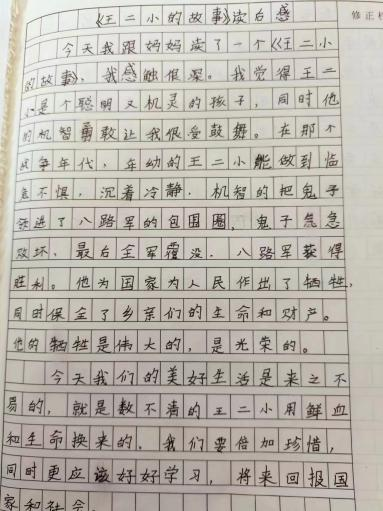 《王二小的故事》读后感
今天我跟妈妈读了一个《王二小
的故事》，我感触很深。我觉得王二
小是个聪明又机灵的孩子，同时他
的机智勇敢让我很受鼓舞。在那个
战争年代，年幼的王二小能做到临
危不惧，沉着冷静，机智的把鬼子
领进了八路军的包围圈，鬼子气急
败坏，最后全军覆没，八路军获得
胜利。他为国家为人民作出了牺牲，
同时保全了乡亲们的生命和财产。
他的牺牲是伟大的，是光荣的。
今天我们的美好生活是来之不
易的，就是数不清的王二小用鲜血
和生命换来的，我们要倍加珍惜，
同时更应该好好学习，将来回报国
家和社会。
修正